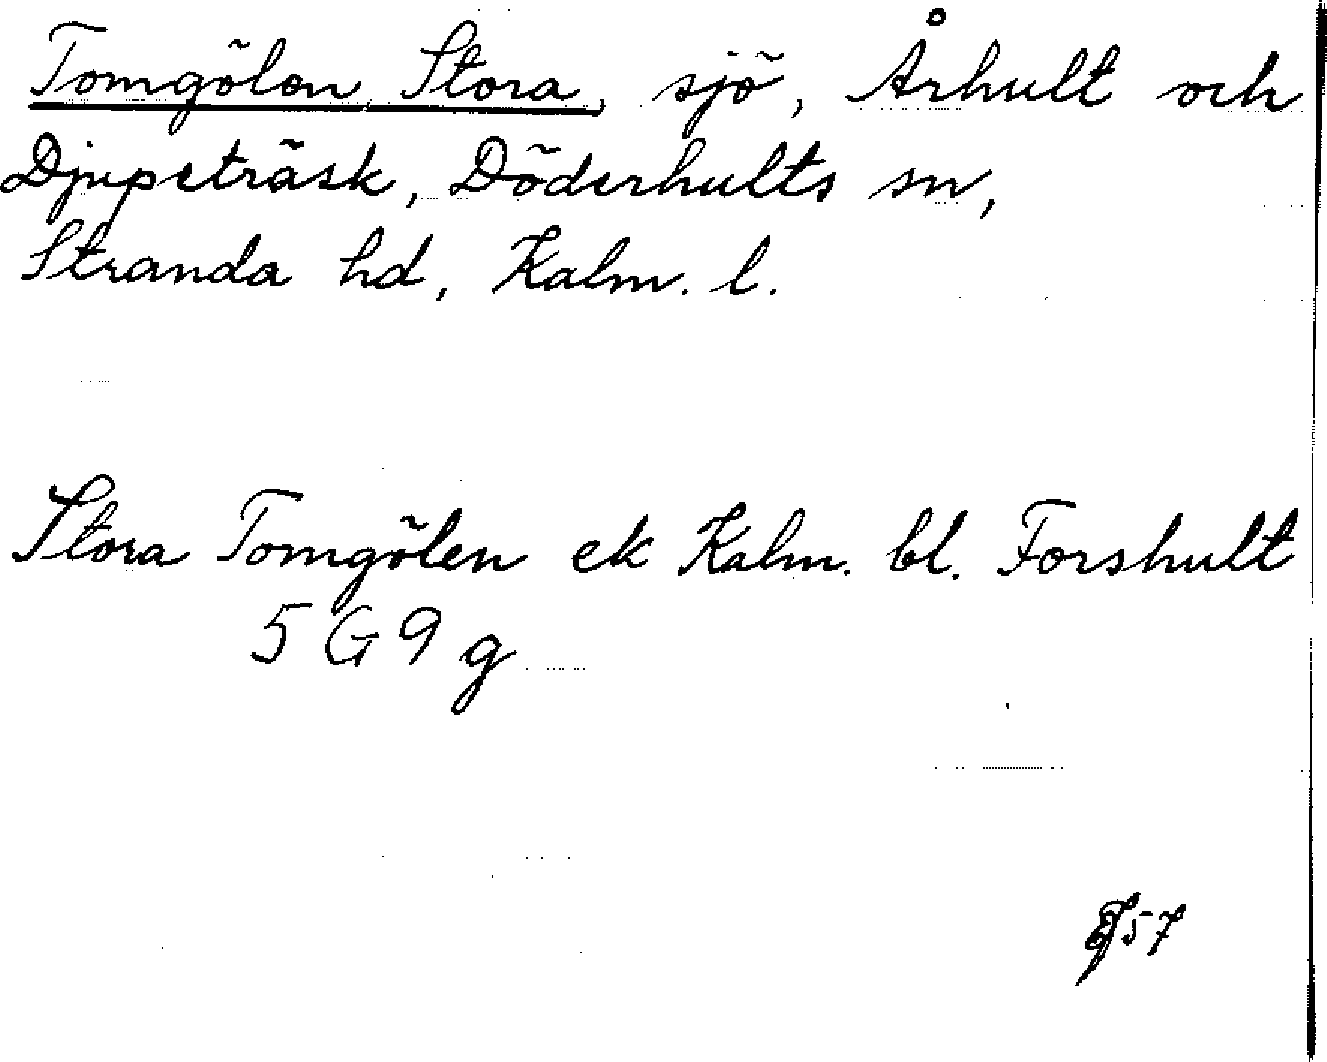 Tomgölen Stora, sjö, Århult och
Djupeträsk, Döderhults sn,
Stranda hd, Kalm. l.
Stora Tomgölen ek Kalm. bl. Forshult
5 G 9 g
57